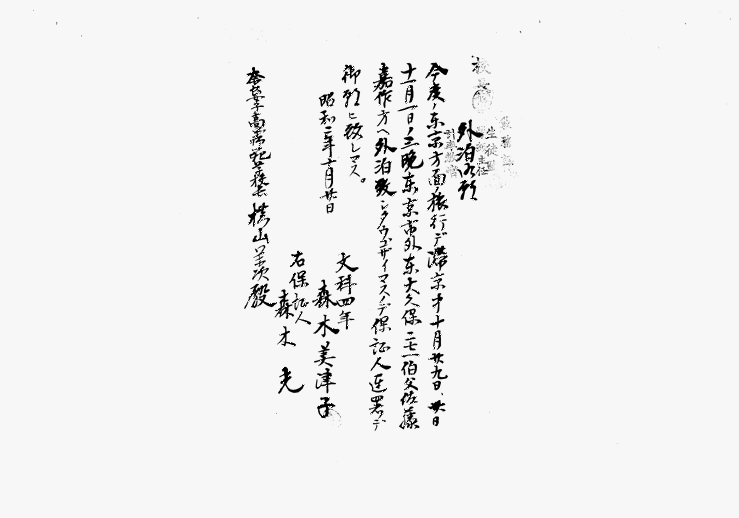 外泊御願
今度ノ東京方面ノ旅行デ滞京中十月廿九日、卅日
十一月一日ノ三晩東京市外東大久保二七一伯父佐藤
嘉作方ヘ外泊致シタウゴザイマスノデ保証人連署デ
御願ヒ致シマス。
昭和二年十月廿日
文科四年
森木美津子
右保証人
森木光
奈良女子高等師範学校長 横山栄次殿